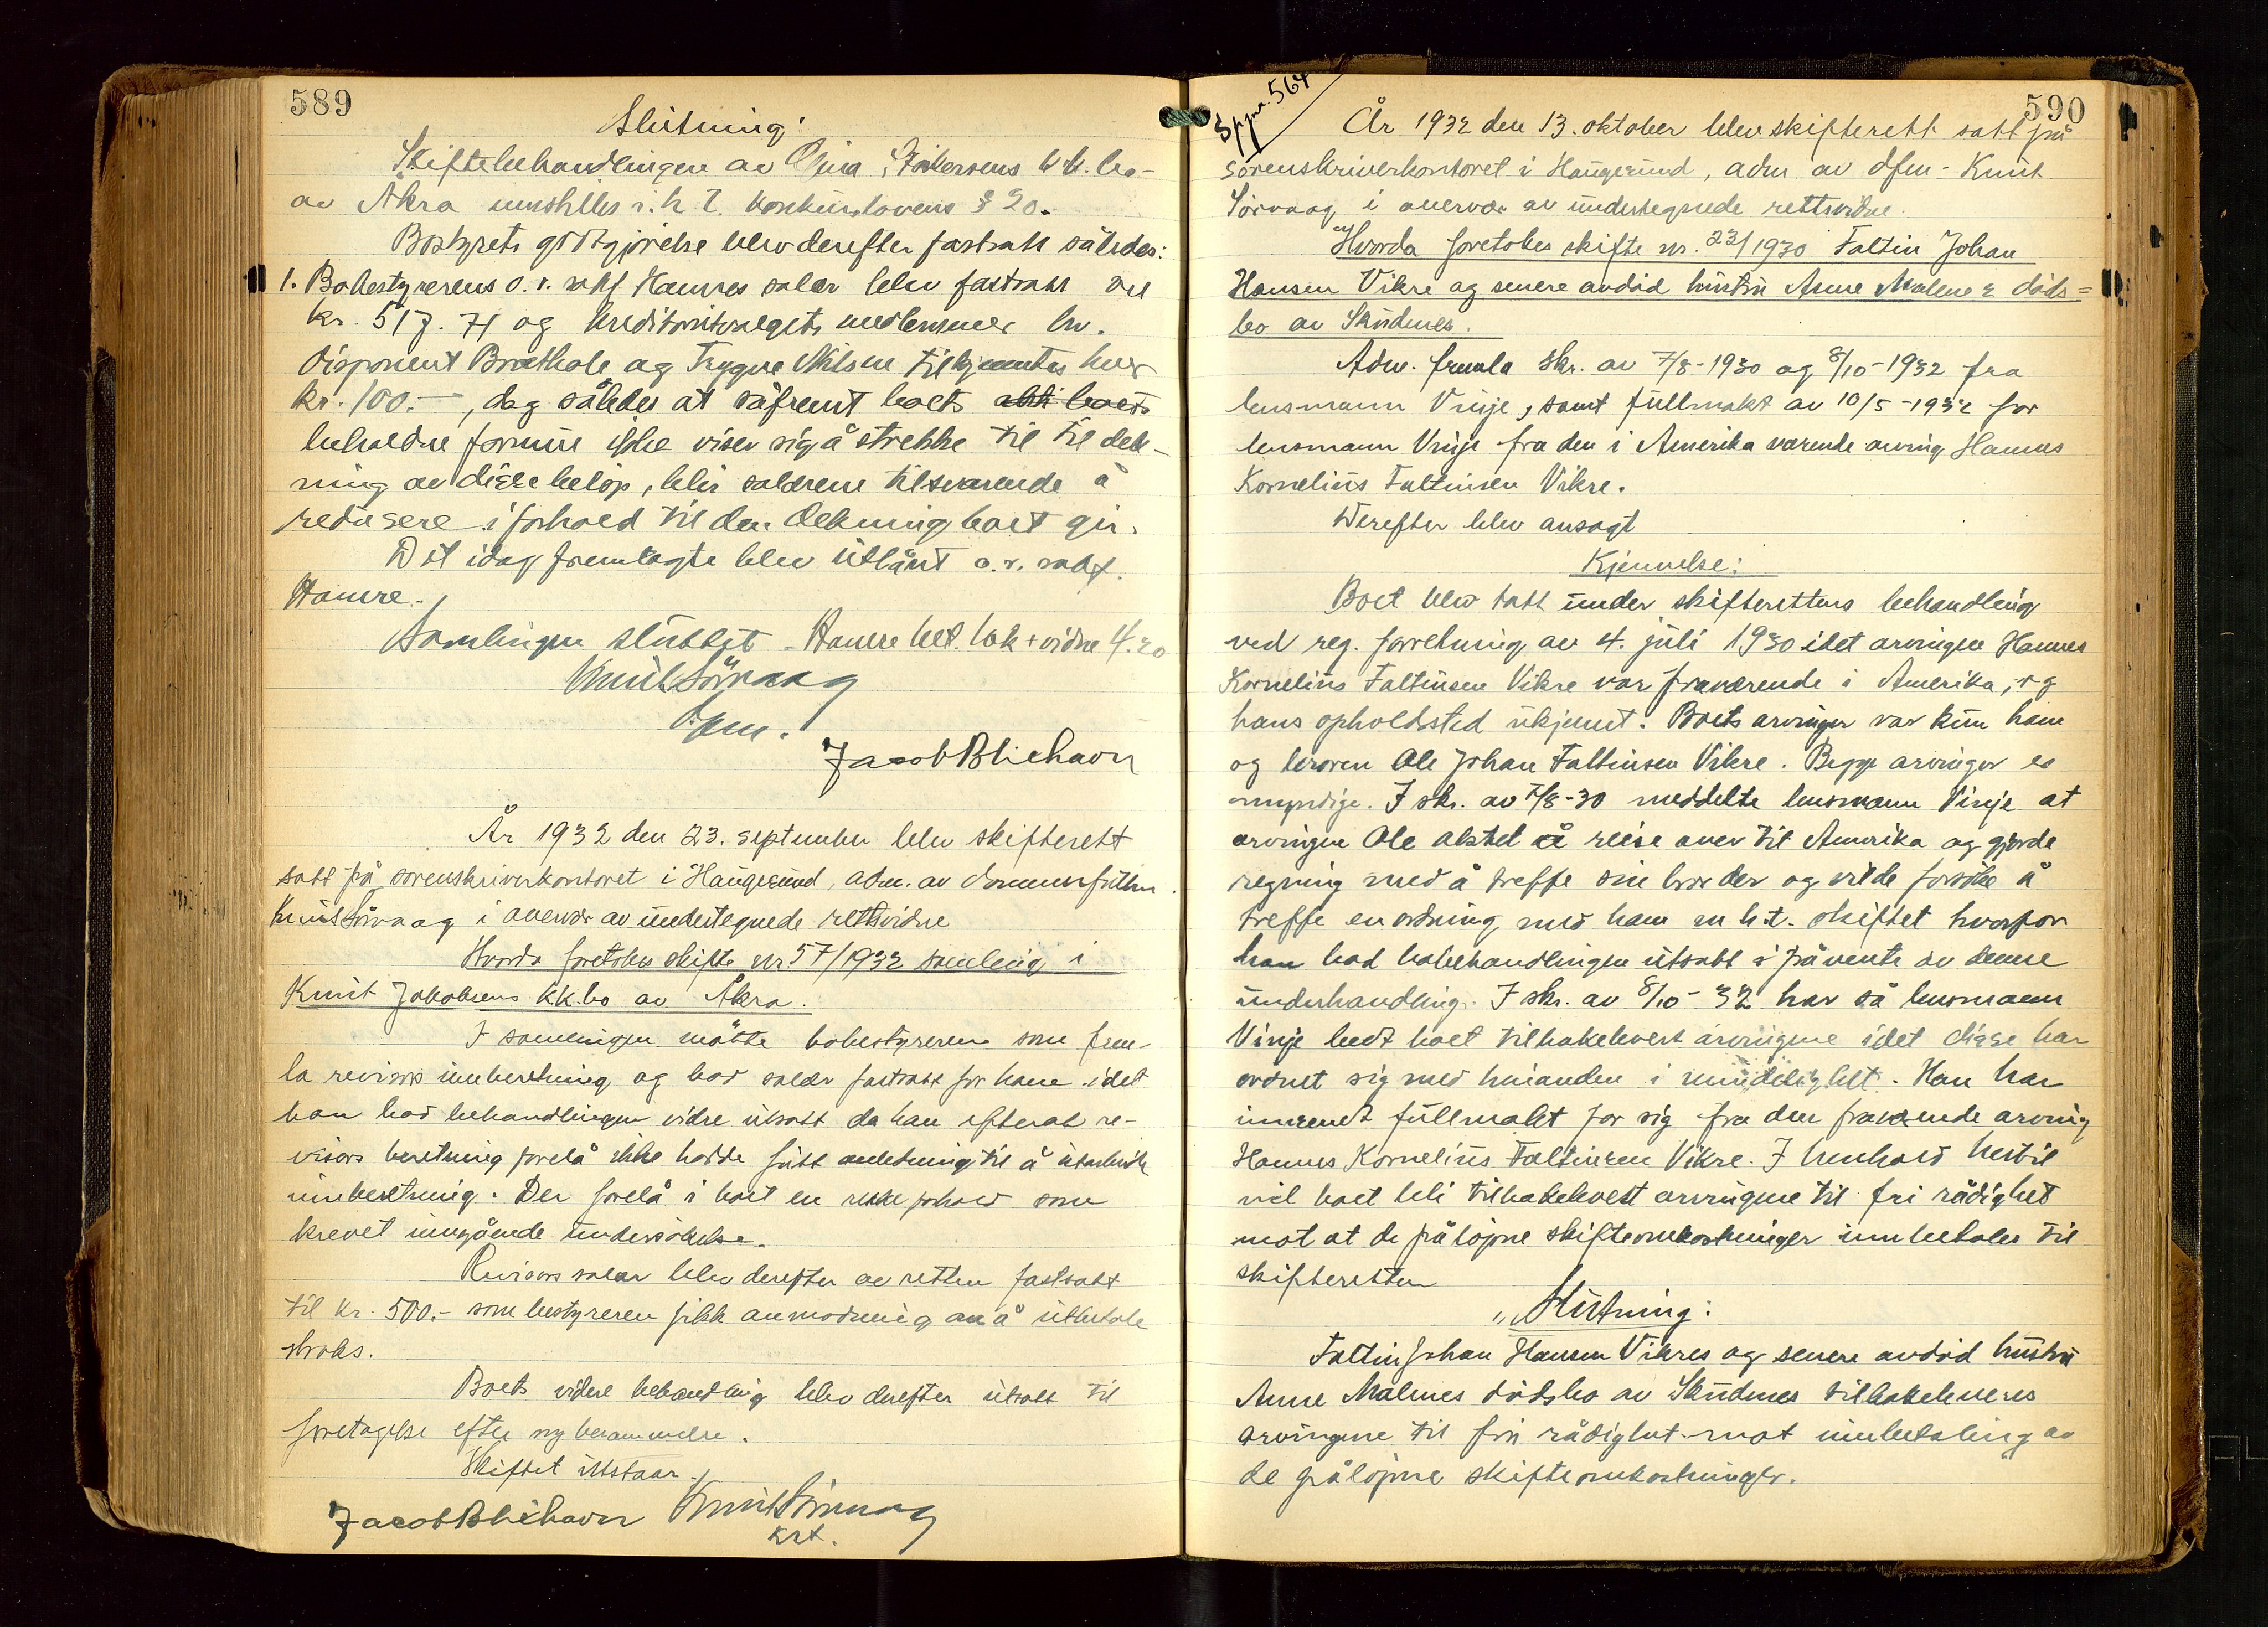 589
Slutning:
Skiftebehandlingen av Gina kk. bo
av Åkra innstilles i. h. t. konkurslovens § 20.
Bostyrets godtgjørelse blev derefter fastsatt således:
1. Bobestyrerens o. r. sakf. Hamres salær blev fastsatt til
kr. 517.71 og kreditorutvalgets medlemmer hr.
disponent Bratthole og Trygve Nilsen tilkjentes hver
kr. 100.-, dog således at såfremt boets
beholdne formue ikke viser sig å strekke til til dek-
ning av disse beløp, blir salærene tilsvarende å
redusere i forhold til den dekning boet gir.
Det idag fremlagte blev utlånt o. r. sakf.
Hamre.
Samlingen sluttet. Hamre bet. bek + vidne 4.20
Knut Sörvaag
dfm.
Jacob Bliehavn
År 1932 den 23. september blev skifterett
satt på sorenskriverkontoret i Haugesund, adm. av dommerfullm.
Knut Sörvaag i overvær av undertegnede rettsvidne
Hvorda foretokes skifte nr. 57/1932 samling i
Knut Jakobsens kk.bo av Åkra.
I samlingen møtte bobestyreren som frem-
la revisors innberetning og bad salær fastsatt for ham idet
han bad behandlingen videre utsatt da han efterat re-
visors beretning forelå ikke hadde fått anledning til å utarbeide
innberetning. Der forelå i boet en rekke forhold som
krevet inngående undersøkelse.
Revisors salær blev derefter av retten fastsatt
til kr. 500.- som bestyreren fikk anmodning om å utbetale
straks.
Boets videre behandling blev derefter utsatt til
foretagelse efter ny berammelse.
Skiftet utstaar.
Jacob Bliehavn Knut Sörvaag
kst.
590
S pr. 564
År 1932 den 13. oktober blev skifterett satt på
sorenskriverkontoret i Haugesund, adm. av dfm. Knut
Sørvaag i overvær av undertegnede rettsvidne.
Hvorda foretokes skifte nr. 23/1930 Faltin Johan
Hansen Vikre og senere avdød hustru Anne Malenes døds=
bo av Skudenes.
Adm. fremla skr. av 7/8-1930 og 8/10-1932 fra
lensmann Vinje, samt fullmakt av 10/5-1932 for
lensmann Vinje fra den i Amerika værende arving Hannes
Kornelius Faltinsen Vikre.
Derefter blev avsagt
Kjennelse:
Boet blev tatt under skifterettens behandling
ved reg. forretning av 4. juli 1930 idet arvingen Hannes
Kornelius Faltinsen Vikre var fraværende i Amerika, og
hans opholdsted ukjent. Boets arvinger var kun ham
og broren Ole Johan Faltinsen Vikre. Begge arvinger er
myndige. I skr. av 7/8-30 meddelte lensmann Vinje at
arvingen Ole aktet å reise over til Amerika og gjorde
regning med å treffe sin broder og vilde forsøke å
treffe en ordning med ham m.h.t. skiftet hvorfor
han bad bobehandlingen utsatt i påvente av denne
underhandling. I skr. av 8/10-32 har så lensmann
Vinje bedt boet tilbakelevert arvingene idet disse har
ordnet sig med hinanden i mindelighet. Han har
innsendt fullmakt for sig fra den fraværende arving
Hannes Kornelius Faltinsen Vikre. I henhold hertil
vil boet bli tilbakelevert arvingene til fri rådighet
mot at de påløpne skifteomkostninger innbetales til
skifteretten
Slutning:
Faltin Johan Hansen Vikres og senere avdød hustru
Anne Malenes dødsbo av Skudenes tilbakeleveres
arvingene til fri rådighet mot innbetaling av
de påløpne skifteomkostninger.